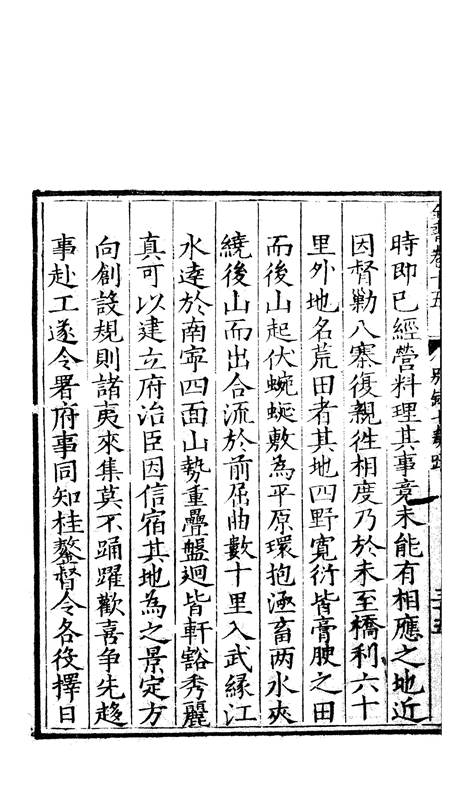 時即已經營料理其事竟未能有相應之地近
因督勦八寨復親徃相度乃於未至橋利六十
里外地名荒田者其地四野寛衍皆膏腴之田
而後山起伏蜿蜒敷為平原環抱涵畜两水夾
繞後山而出合流於前屈曲數十里入武縁江
水逹於南寜四面山勢重疊盤迴皆軒豁秀麗
真可以建立府治臣因信宿其地為之景定方
向創設規則諸夷來集莫不踊躍歡喜争先趍
事赴工遂令署府事同知桂鏊督令各役擇日